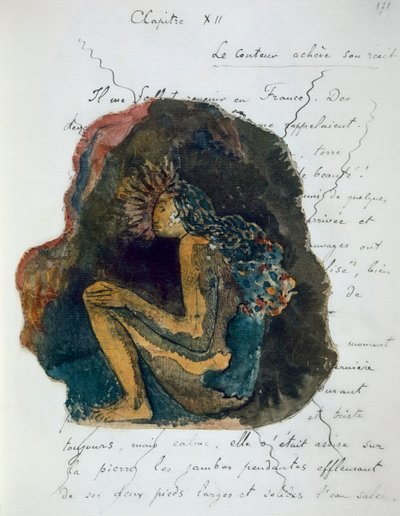 171
Chapitre XII
Le conteur achève son récit
Il me fallut revenir en France. Des
appelaient.
terre
de beauté!
de quelques
arrivée et
sauvages ont
bien
de
moment
dernière
durant
et triste
toujours, mais calme, elle s'était assise sur
la pierre, les jambes pendantes effleurant
de ses deux pieds larges et solides l'eau salée.